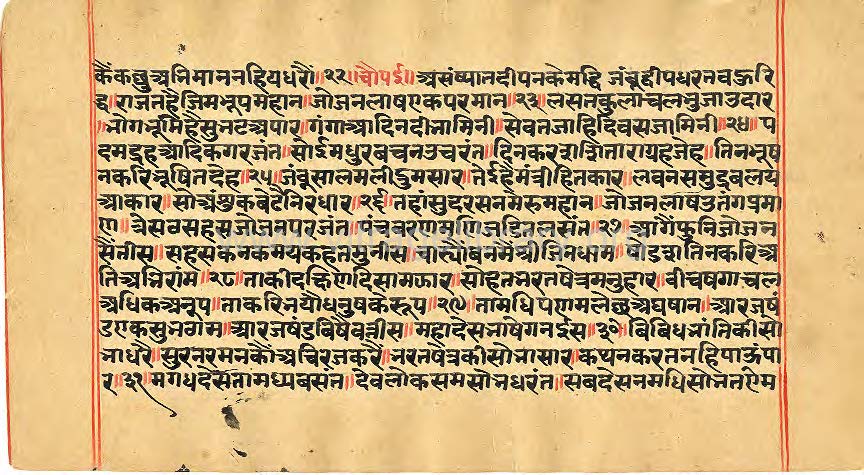 कैं कछु अनिमान नहि य धरैं॥२२॥चौपई॥असंष्यान दीपन के मद्धि जंबूदीप धरनव क्तरि
द्ध॥राजत है जिम भूप महान॥जोजन लाष एक परमान॥२३॥लसत कुलाचल भुजा उदार
॥भोगभूमि है सुभट अपार॥गंगा आदि नदी भामिनी॥सेवत जाहि दिवस जामिनी॥२४॥प
दम द्रह आदिक गरजंत॥सोई मधुर बचन उचरंत॥दिनकर शशि तारा ग्रह जेह॥तिन भूष
न करि भूषित देह॥२५॥जंबू सालमली द्रुम सार॥तेई है मंत्री हितकार॥लवन समुद्र वलय
आकार॥सो अंशुक बेटै निरधार॥२६॥तहां सुदरसन मेरु महान॥जोजन लाष उतंग प्रमा
ण॥त्रेसव सहस जोजन परजंत॥पंच वरण मणि जडित लसंत॥२७॥आगैं फुनि जोजन
सैंतीस॥सहस कनकमय कहत मुनीस॥चास्यौं बन में श्री जिन धाम॥षोडश तिन करि अ
ति अभिरांम॥२८॥ताकी दछिण दिसा मझार॥सोहत भरत षेत्र मनुहार॥बीच षगाचल
अधिक अनूप॥ताकरि भयौ धनुष के रूप॥२९॥तामधि षण मलेछ अघषान॥आरजषं
ड एक सुभ गेम॥आरजषंड विषै बत्तीस॥महादेस भाषे गनईस॥३०॥बिबिध भांति की सो
भा धरै॥सुर नर मन कौं अचिरज करै॥भरत षेत्र की सोभा सार॥कथन करत नहि पाऊं पा
र॥३१॥मगध देस ता मध्य बसंत॥देवलोक सम सोभ धरंत॥सब देसन मधि सोभत एम